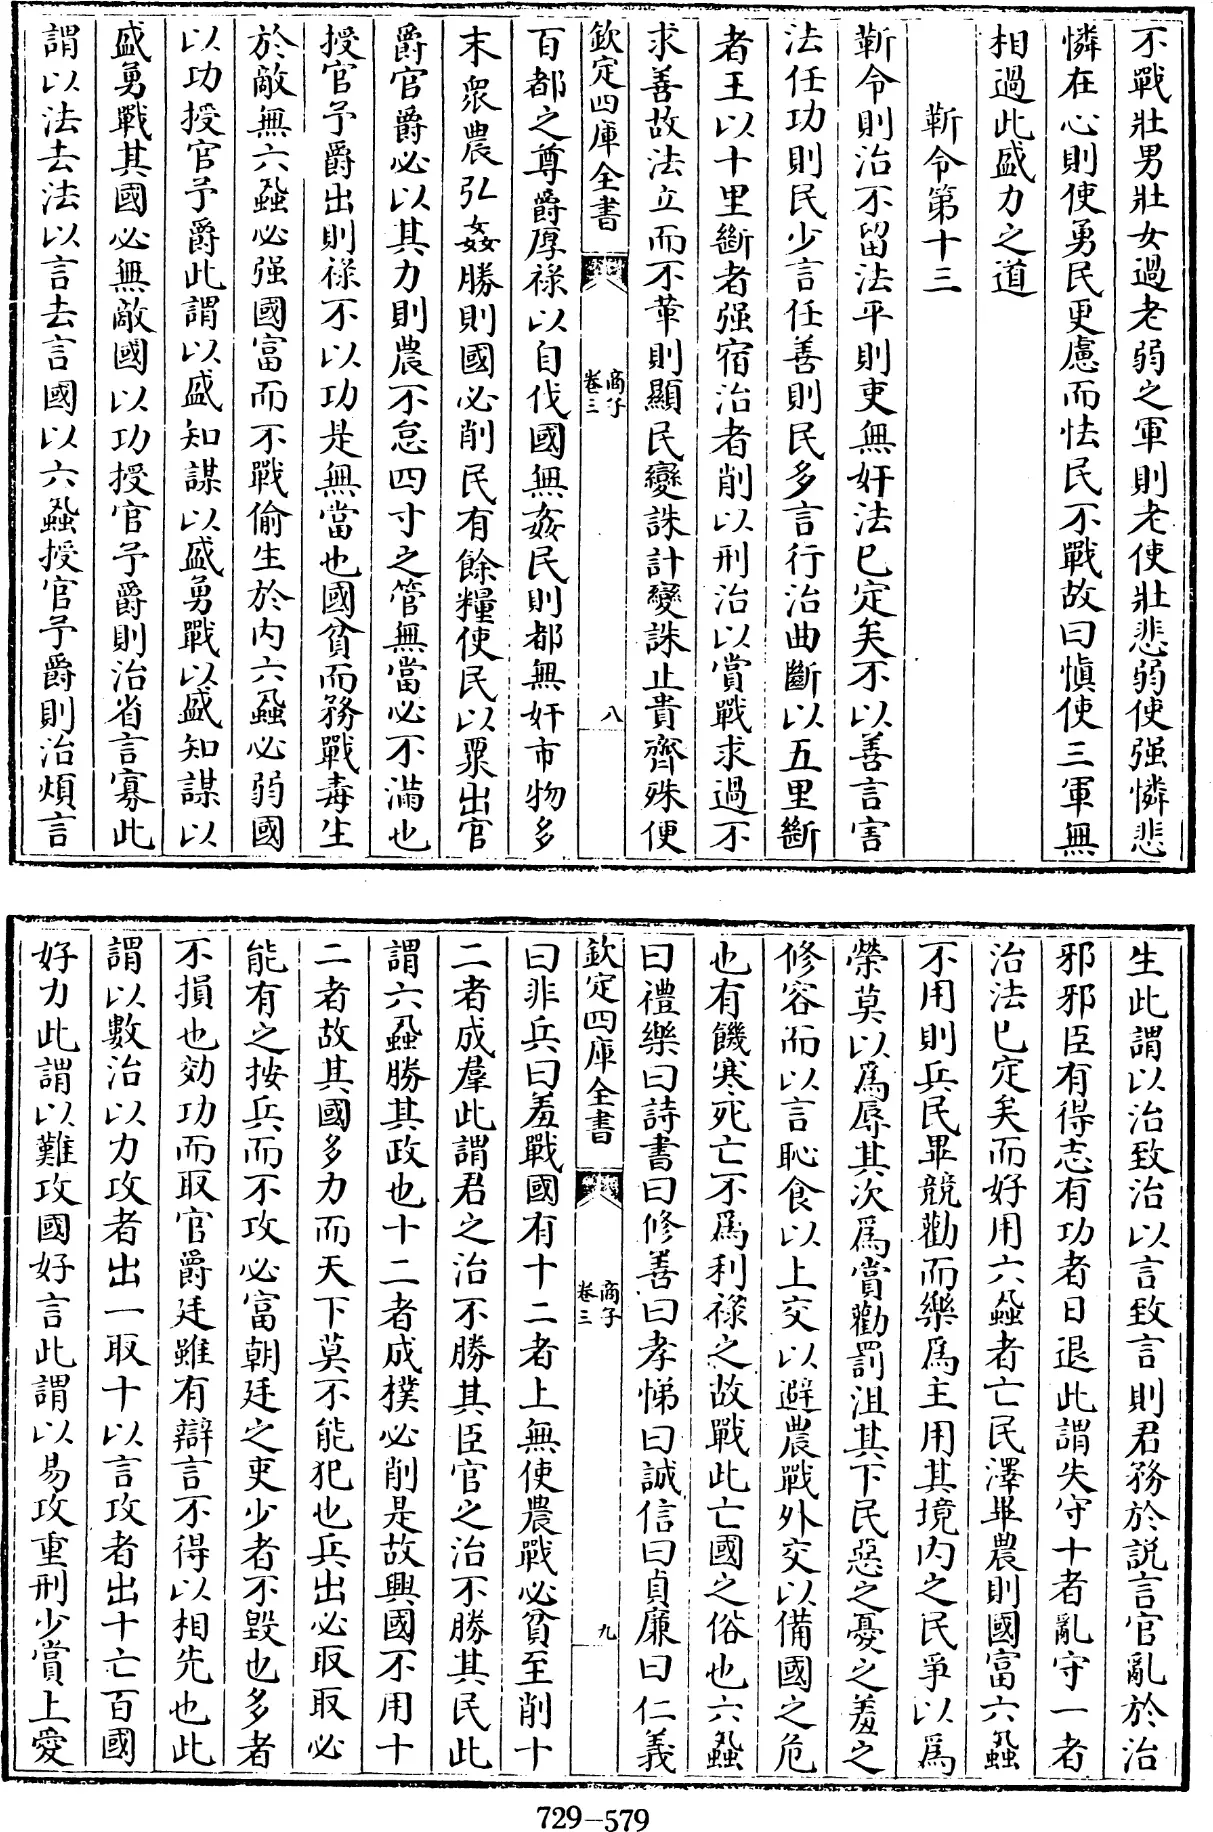 不戰壯男壯女過老弱之軍則老使壯悲弱使强憐悲
憐在心則使勇民更慮而怯民不戰故曰愼使三軍無
相過此盛力之道
靳令第十三
靳令則治不留法平則吏無奸法已定矣不以善言害
法任功則民少言任善則民多言行治曲斷以五里斷
者王以十里斷者强宿治者削以刑治以賞戰求過不
求善故法立而不革則顯民變誅計變誅止貴齊殊便
欽定四庫全書
商子
卷三
八
百都之尊爵厚祿以自伐國無姦民則都無奸市物多
末衆農弘姦勝則國必削民有餘糧使民以粟出官
爵官爵必以其力則農不怠四寸之管無當必不滿也
授官予爵出則祿不以功是無當也國貧而務戰毒生
於敵無六蝨必强國富而不戰偷生於内六蝨必弱國
以功授官予爵此謂以盛知謀以盛勇戰以盛知謀以
盛勇戰其國必無敵國以功授官予爵則治省言寡此
謂以法去法以言去言國以六蝨授官予爵則治煩言
生此謂以治致治以言致言則君務於說言官亂於治
邪邪臣有得志有功者日退此謂失守十者亂守一者
治法已定矣而好用六蝨者亡民澤畢農則國富六蝨
不用則兵民畢競勸而樂爲主用其境内之民爭以爲
榮莫以爲辱其次爲賞勸罰沮其下民惡之憂之羞之
修容而以言恥食以上交以避農戰外交以備國之危
也有饑寒死亡不爲利祿之故戰此亡國之俗也六蝨
曰禮樂曰詩書曰修善曰孝悌曰誠信曰貞廉曰仁義
欽定四庫全書
商子
卷三
九
曰非兵曰羞戰國有十二者上無使農戰必貧至削十
二者成羣此謂君之治不勝其臣官之治不勝其民此
謂六蝨勝其政也十二者成樸必削是故興國不用十
二者故其國多力而天下莫不能犯也兵出必取取必
能有之按兵而不攻必富朝廷之吏少者不毀也多者
不損也効功而取官爵廷雖有辯言不得以相先也此
謂以數治以力攻者出一取十以言攻者出十亡百國
好力此謂以難攻國好言此謂以易攻重刑少賞上愛
729-579